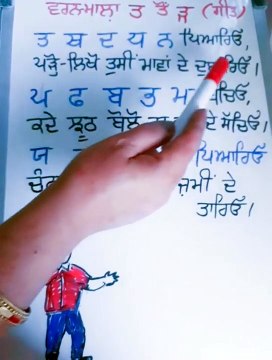 ਵਰਨਮਾਲਾ ਤ ਤੋਂ ੜ (ਗੀਤ)
ਤ ਥ ਦ ਧ ਨ ਪਿਆਰਿਓ,
ਪੜ੍ਹੋ-ਲਿਖੋ ਤੁਸੀਂ ਮਾਵਾਂ ਦੇ
ਪ ਫ ਬ ਭ ਮ
ਕਦੇ ਝੂਠ ਬੋਲੋ ਦੇ ਸੱਚਿਓ।
ਯ ਪਿਆਰਿਓ
ਜ਼ਮੀਂ ਦੇ
ਤਾਰਿਓ।